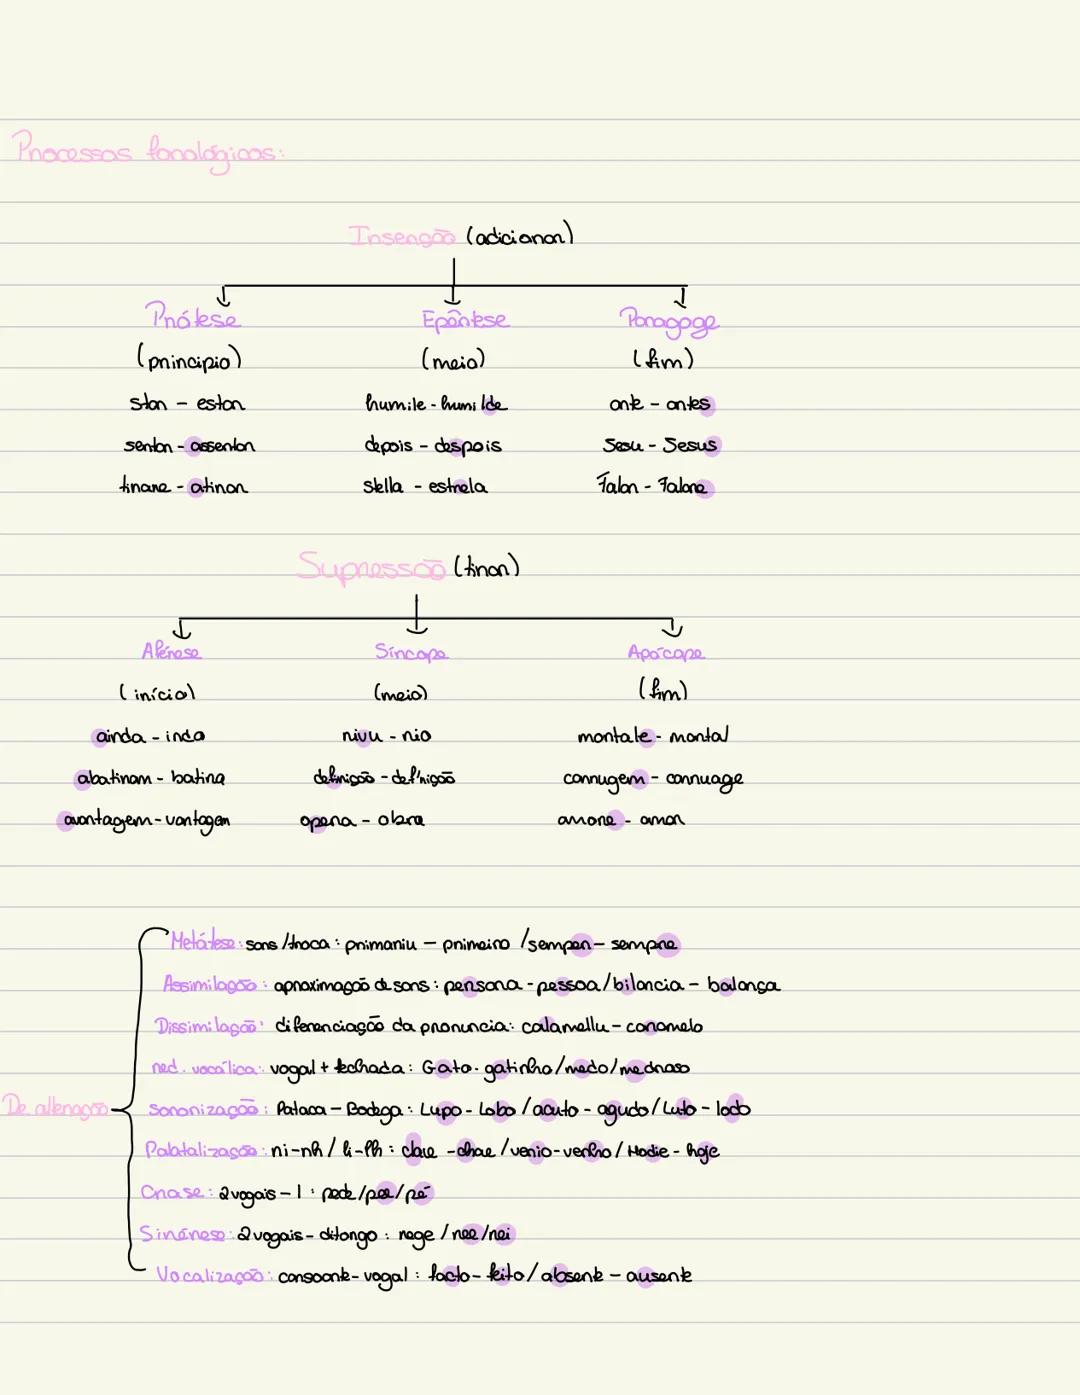 Processos fonológicos:
Inserção (adicionar)
Prótese Epêntese Paragoge
(principio) (meio) (fim)
star - estar humile - humilde ante - antes
sentar - assentar depois - despois Jesu - Jesus
tirare - atirar stella - estrela Falar - Falare
Supressão (tirar)
Aférese Síncope Apócope
(início) (meio) (fim)
ainda - inda nivu - nio montale - montal
abatinam - batina definição - def'nição carrugem - carruage
avantagem - vantagem opera - obra amore - amor
De alteração
Metátese: sons / troca: primariu - primeiro / semper - sempre
Assimilação: aproximação de sons: persona - pessoa / bilancia - balança
Dissimilação: diferenciação da pronuncia: calamellu - caramelo
red. vocálica: vogal + fechada: Gato - gatinho / medo / medroso
Sonorização: Pataca - Bodega: Lupo - Lobo / acuto - agudo / Luto - lodo
Palatalização: ni - nh / li - lh: clave - chave / venio - venho / Hodie - hoje
Crase: 2 vogais - 1: pede / pee / pé
Sinérese: 2 vogais - ditongo: rege / ree / rei
Vocalização: consoante - vogal: facto - feito / absente - ausente